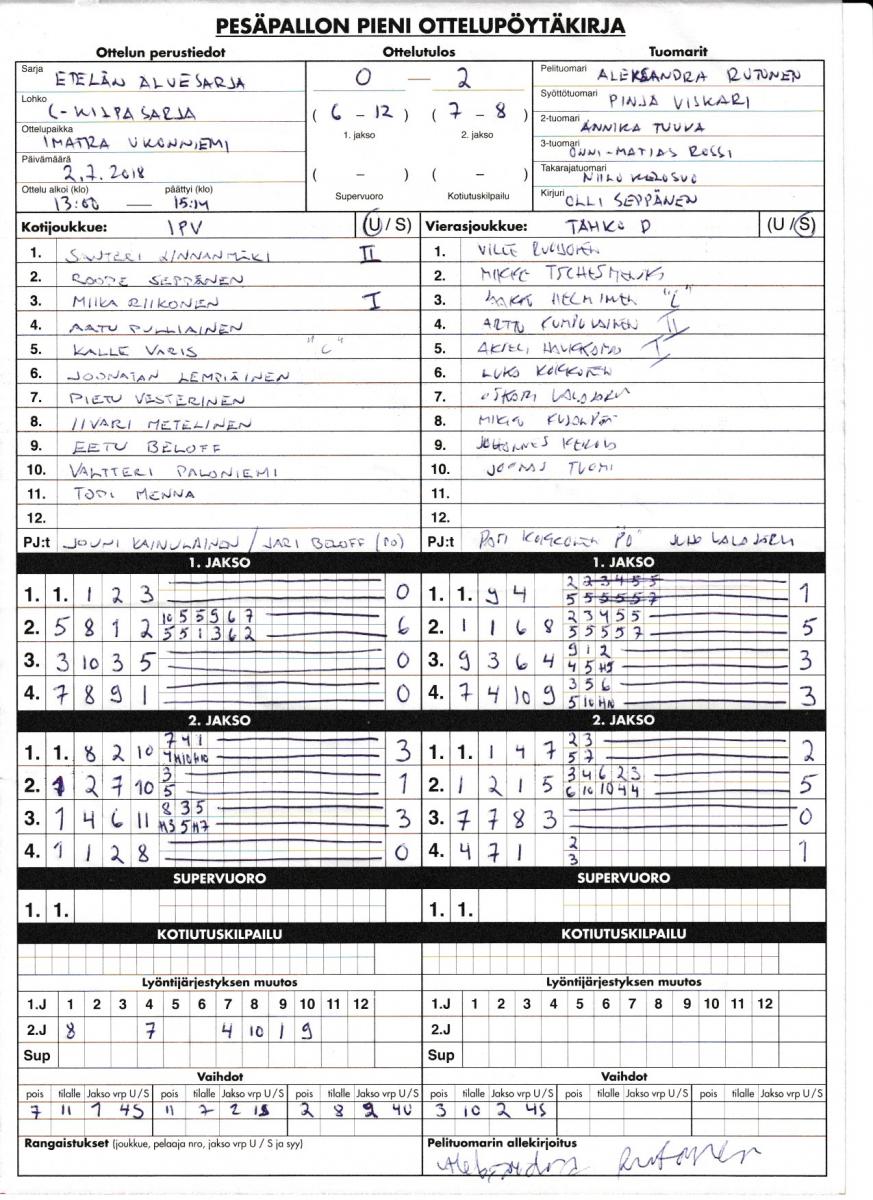 PESÄPALLON PIENI OTTELUPÖYTÄKIRJA
Ottelun perustiedot Ottelutulos Tuomarit
Sarja ETELÄN ALUESARJA 0 — 2 Pelituomari ALEKSANDRA RUTONEN
Lohko C-KILPASARJA ( 6 – 12 ) ( 7 – 8 ) Syöttötuomari PINJA VISKARI
Ottelupaikka IMATRA UKONNIEMI 1. jakso 2. jakso 2-tuomari ANNIKA TUUVA
Päivämäärä 2.7.2018 ( – ) ( – ) 3-tuomari ONNI-MATIAS ROSSI
Takarajatuomari NIILO
Ottelu alkoi (klo) 13:00 — päättyi (klo) 15:14 Supervuoro Kotiutuskilpailu Kirjuri OLLI SEPPÄNEN
Kotijoukkue: IPV (U / S) Vierasjoukkue: TAHKO D (U / S)
1. SANTERI LINNANMÄKI II 1. VILLE
2. ROOPE SEPPÄNEN 2.
3. MIIKA RIIKONEN I 3. HELMINEN "C"
4. AATU PULLIAINEN 4. ARTTU KUMPULAINEN II
5. KALLE VARIS "C" 5. AKSELI I
6. JOONATAN LEMPIÄINEN 6. KOKKONEN
7. PIETU VESTERINEN 7.
8. IIVARI METELINEN 8.
9. EETU BELOFF 9. JOHANNES
10. VALTTERI PALONIEMI 10. JOONAS TUOMI
11. TOPI MENNA 11.
12. 12.
PJ:t JOUNI KAINULAINEN / JARI BELOFF (PO) PJ:t
1. JAKSO 1. JAKSO
1. 1. 1 2 3 0 1. 1. 9 4 2 2 3 4 5 5 1
5 5 5 5 5 7
2. 5 8 1 2 10 5 5 9 6 7 6 2. 1 1 6 8 2 3 4 5 5 5
5 5 1 3 6 2 5 5 5 5 7
3. 3 10 3 5 0 3. 9 3 6 4 9 1 2 3
4 5 H5
4. 7 8 9 1 0 4. 7 4 10 9 3 5 6 3
5 10 H10
2. JAKSO 2. JAKSO
1. 1. 8 2 10 7 4 1 3 1. 1. 1 4 7 2 3 2
4 H10 H10 5 7
2. 1 2 7 10 3 1 2. 1 2 1 5 3 4 6 2 3 5
5 6 10 10 4 4
3. 1 4 6 11 8 3 5 3 3. 7 7 8 3 0
H3 5 H7
4. 1 1 2 8 0 4. 4 7 1 2 1
3
SUPERVUORO SUPERVUORO
1. 1. 1. 1.
KOTIUTUSKILPAILU KOTIUTUSKILPAILU
Lyöntijärjestyksen muutos Lyöntijärjestyksen muutos
1.J 1 2 3 4 5 6 7 8 9 10 11 12 1.J 1 2 3 4 5 6 7 8 9 10 11 12
2.J 8 7 4 10 1 9 2.J
Sup Sup
Vaihdot Vaihdot
pois tilalle Jakso vrp U / S pois tilalle Jakso vrp U / S pois tilalle Jakso vrp U / S pois tilalle Jakso vrp U / S pois tilalle Jakso vrp U / S pois tilalle Jakso vrp U / S
7 11 1 4S 11 7 2 1S 2 8 2 4U 3 10 2 4S
Rangaistukset (joukkue, pelaaja nro, jakso vrp U / S ja syy) Pelituomarin allekirjoitus